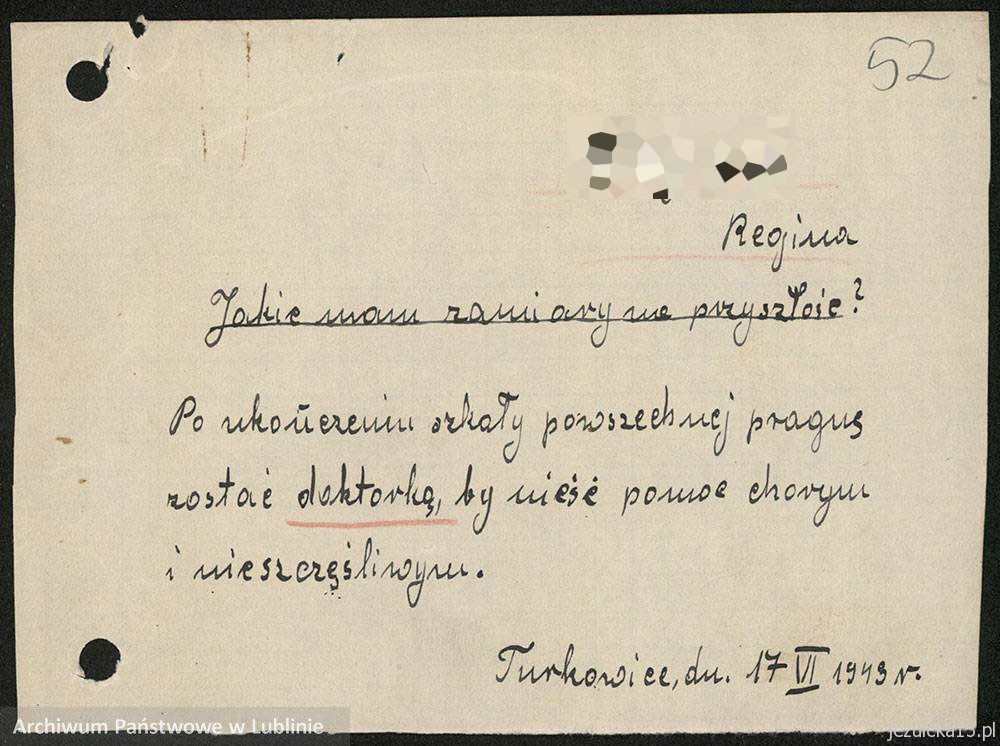 52
Regina
Jakie mam zamiary na przyszłość?
Po ukończeniu szkoły powszechnej pragnę
zostać doktorką, by nieść pomoc chorym
i nieszczęśliwym.
Turkowice, dn. 17 VI 1943 r.
Archiwum Państwowe w Lublinie
jezuicka13.pl